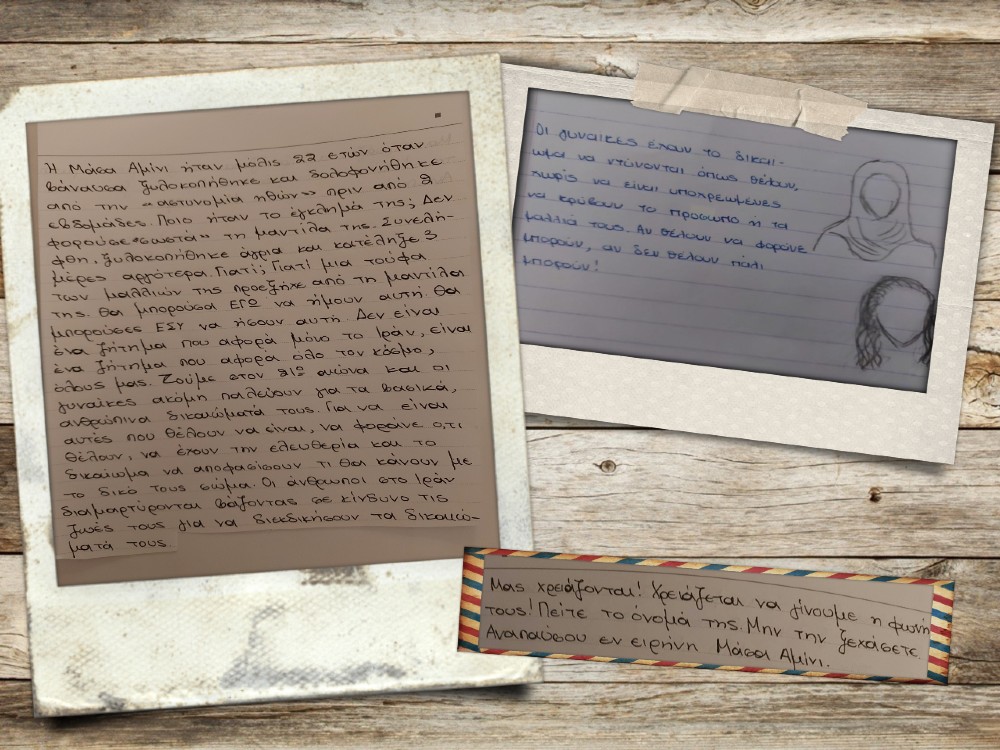 Η Μάσα Αμίνι ήταν μόλις 22 ετών όταν
βάναυσα ξυλοκοπήθηκε και δολοφονήθηκε
από την «αστυνομία ηθών» πριν από 2
εβδομάδες. Ποιο ήταν το έγκλημά της; Δεν
φορούσε «σωστά» τη μαντίλα της. Συνελή-
φθη, ξυλοκοπήθηκε άγρια και κατέληξε 3
μέρες αργότερα. Γιατί; Γιατί μια τούφα
των μαλλιών της προεξήχε από τη μαντίλα
της. Θα μπορούσα ΕΓΩ να ήμουν αυτή. Θα
μπορούσες ΕΣΥ να ήσουν αυτή. Δεν είναι
ένα ζήτημα που αφορά μόνο το Ιράν, είναι
ένα ζήτημα που αφορά όλο τον κόσμο,
όλους μας. Ζούμε στον 21ο αιώνα και οι
γυναίκες ακόμη παλεύουν για τα βασικά,
ανθρώπινα δικαιώματά τους. Για να είναι
αυτές που θέλουν να είναι, να φοράνε ό,τι
θέλουν, να έχουν την ελευθερία και το
δικαίωμα να αποφασίσουν τι θα κάνουν με
το δικό τους σώμα. Οι άνθρωποι στο Ιράν
διαμαρτύρονται βάζοντας σε κίνδυνο τις
ζωές τους για να διεκδικήσουν τα δικαιώ-
ματά τους.
Οι γυναίκες έχουν το δικαί-
ωμα να ντύνονται όπως θέλουν,
χωρίς να είναι υποχρεωμένες
να κρύβουν το πρόσωπο ή τα
μαλλιά τους. Αν θέλουν να φοράνε
μπορούν, αν δεν θέλουν πάλι
μπορούν!
Μας χρειάζονται! Χρειάζεται να γίνουμε η φωνή
τους! Πείτε το όνομά της. Μην την ξεχάσετε.
Αναπαύσου εν ειρήνη Μάσα Αμίνι.